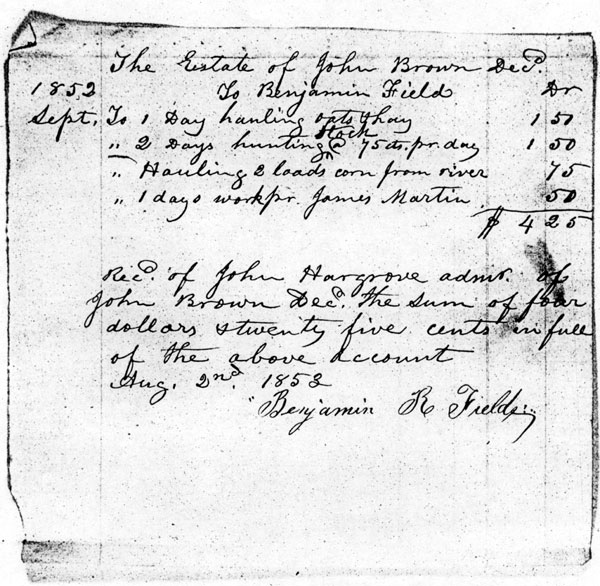 The Estate of John Brown Decd.
To Benjamin Field Dr
1852
Sept. To 1 Day hauling oats & hay 1 50
" 2 Days hunting stock @ 75 cts. pr. day 1 50
" Hauling 2 loads corn from river 75
" 1 days work pr. James Martin 50
$ 4 25
Recd. of John Hargrove admr. of
John Brown Decd. the sum of four
dollars & twenty five cents in full
of the above account
Aug. 2nd. 1853
Benjamin R Fields